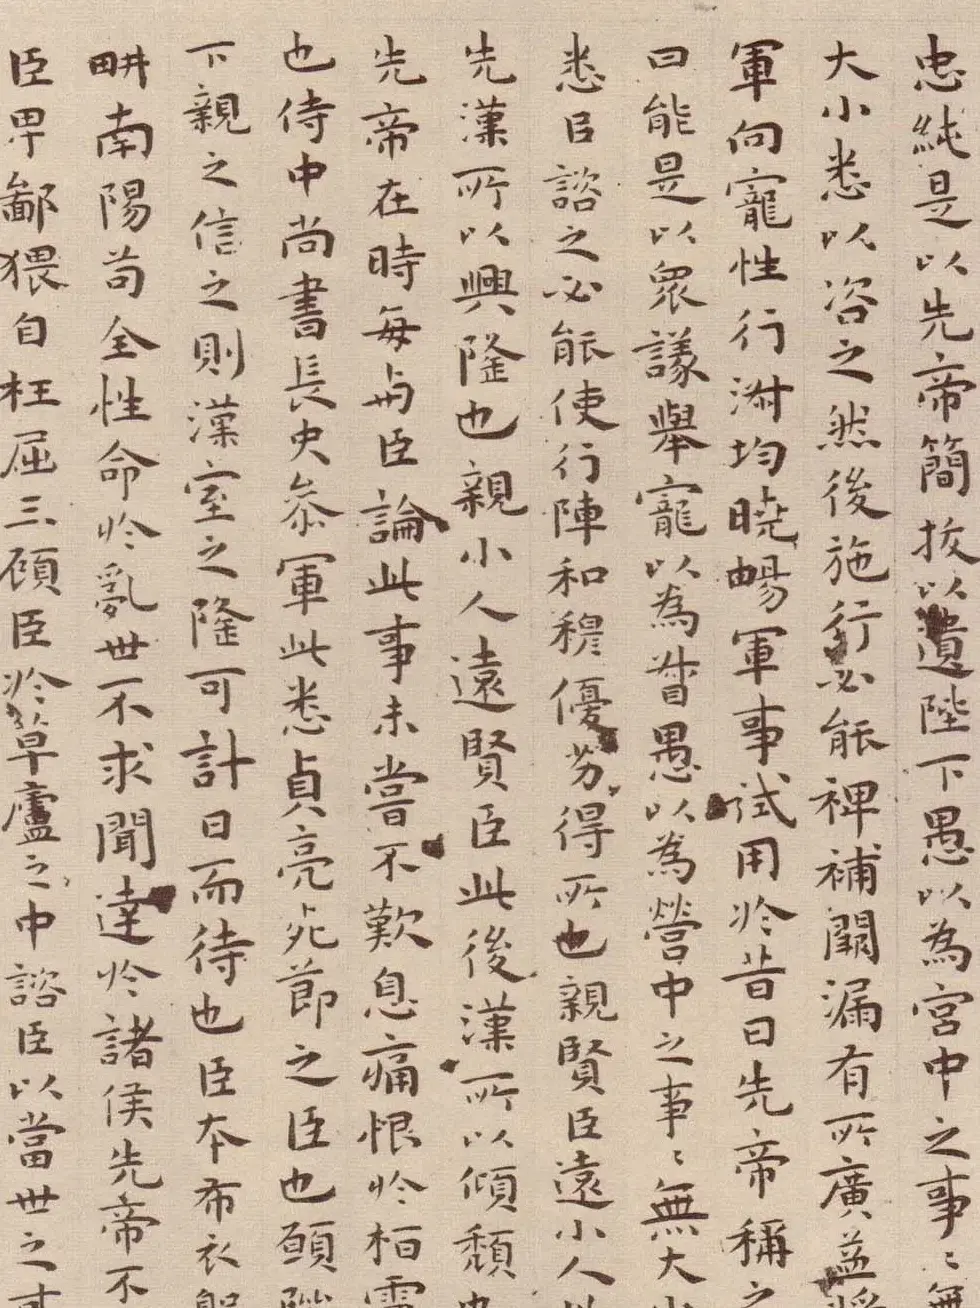 忠純是以先帝簡拔以遺陛下愚以為宮中之事〻無
大小悉以咨之然後施行必能裨補闕漏有所廣益將
軍向寵性行淑均曉暢軍事試用於昔日先帝稱之
曰能是以眾議舉寵以為督愚以為營中之事〻無大小
悉以諮之必能使行陣和穆優劣得所也親賢臣遠小人此
先漢所以興隆也親小人遠賢臣此後漢所以傾頹也
先帝在時每與臣論此事未嘗不歎息痛恨於桓靈
也侍中尚書長史參軍此悉貞亮死節之臣也願陛
下親之信之則漢室之隆可計日而待也臣本布衣躬
畊南陽苟全性命於亂世不求聞達於諸侯先帝不
臣卑鄙猥自枉屈三顧臣於草廬之中諮臣以當世之事